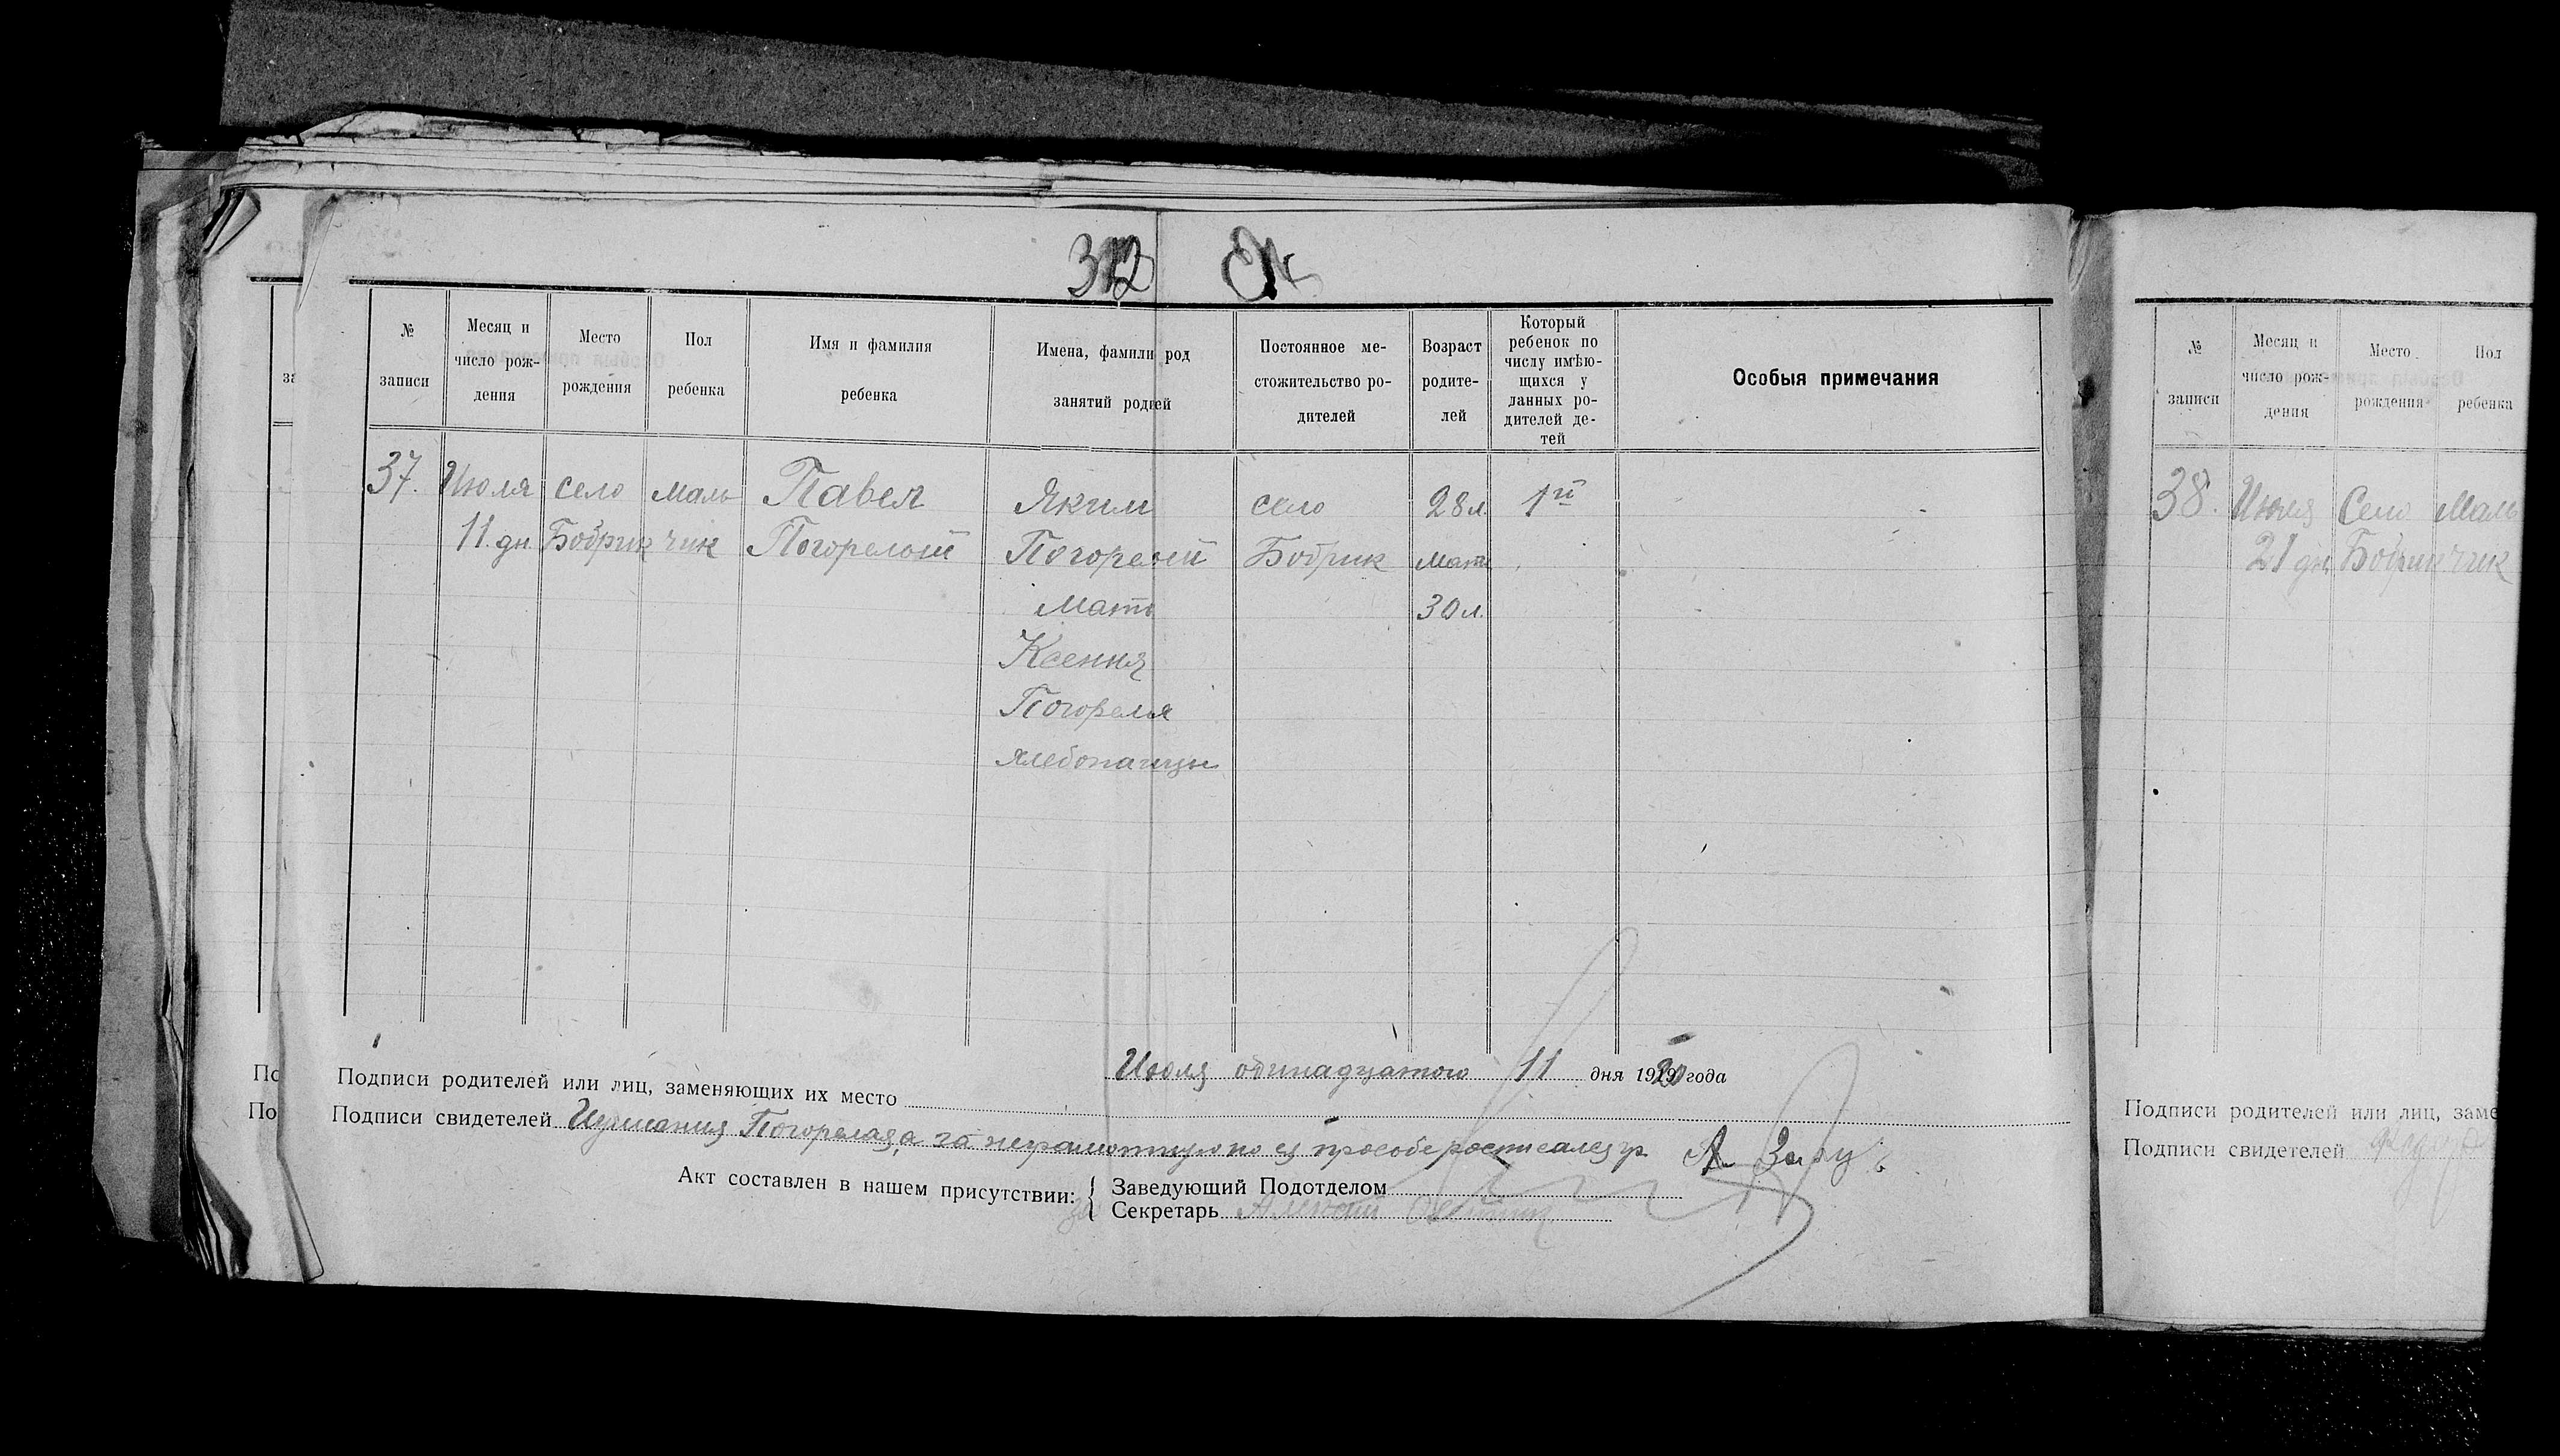 312
№ записи
Месяц и число рождения
Место рождения
Пол ребенка
Имя и фамилия ребенка
Имена, фамили род занятий родией
Постоянное местожительство родителей
Возраст родителей
Который ребенок по числу имѣющихся у данных родителей детей
Особыя примечания
37. Июля село маль Павел Яким село 28 л. 1й
11 дн. Бобрик чик Погорелой Погорелой Бобрик мать
Мать 30 л.
Ксения
Погореля
хлебопашцы
Июля одинадцатого 11 дня 1920 года
Подписи родителей или лиц, заменяющих их место
Подписи свидетелей Погорелая, а за неграмотную по ея прособе росписался гр.
Акт составлен в нашем присутствии:
Заведующий Подотделом
Секретарь
№ записи
Месяц и число рождения
Место рождения
Пол ребенка
38. Июля Село Маль
21 дн. Бобрик чик
Подписи родителей или лиц, заме
Подписи свидетелей
за
По
По